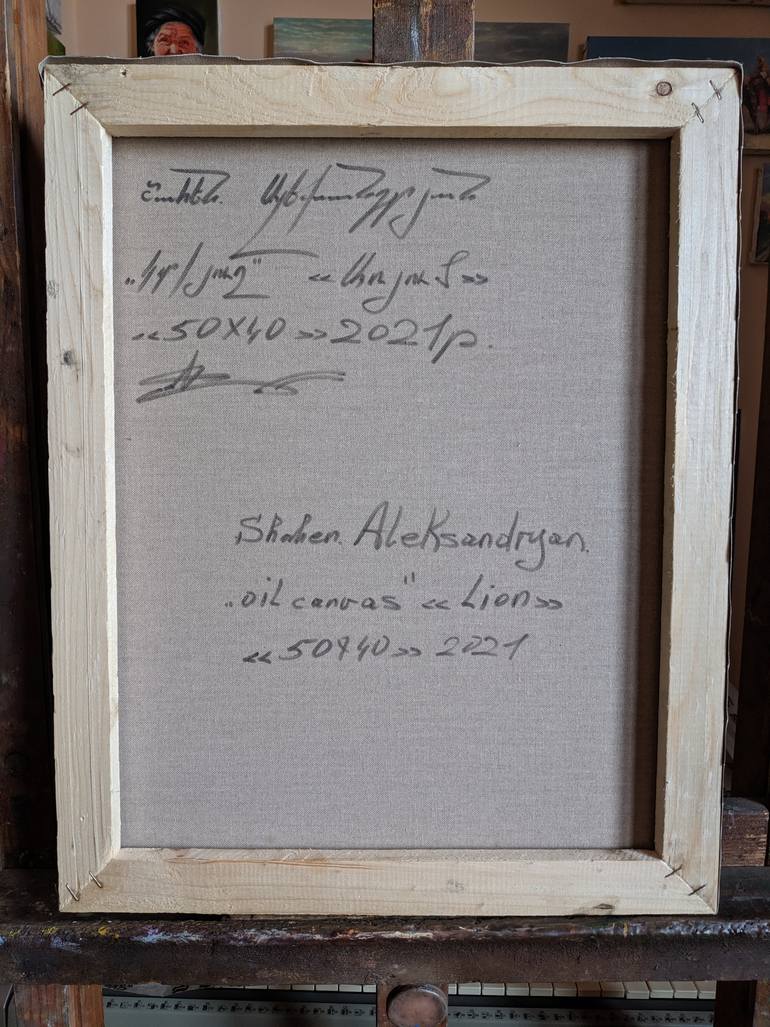 Շահեն Ալեքսանդրյան
„կտ/յուղ" « Առյուծ »
« 50X40 » 2021թ.
Shahen Aleksandryan.
„oil canvas" « Lion »
« 50X40 » 2021